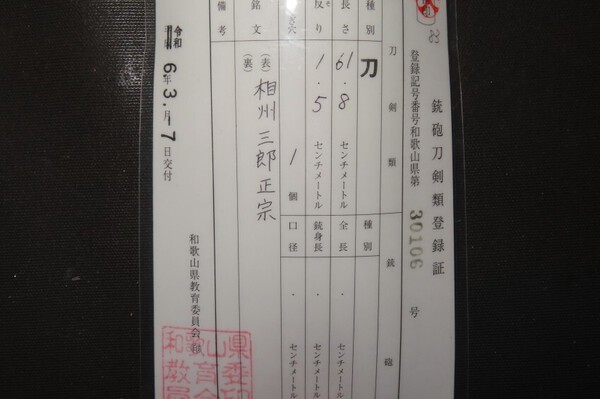 銃砲刀剣類登録証
登録記号番号和歌山県第 30106 号
刀剣類
銃砲
種別 刀
種別
長さ 61.8 センチメートル
全長 . センチメートル
反り 1.5 センチメートル
銃身長 . センチメートル
穴 1個
口径 . センチメートル
銘文 (表) 相州三郎正宗
(裏)
備考
令和 6年 3.月-7日交付
和歌山県教育委員会 ㊞